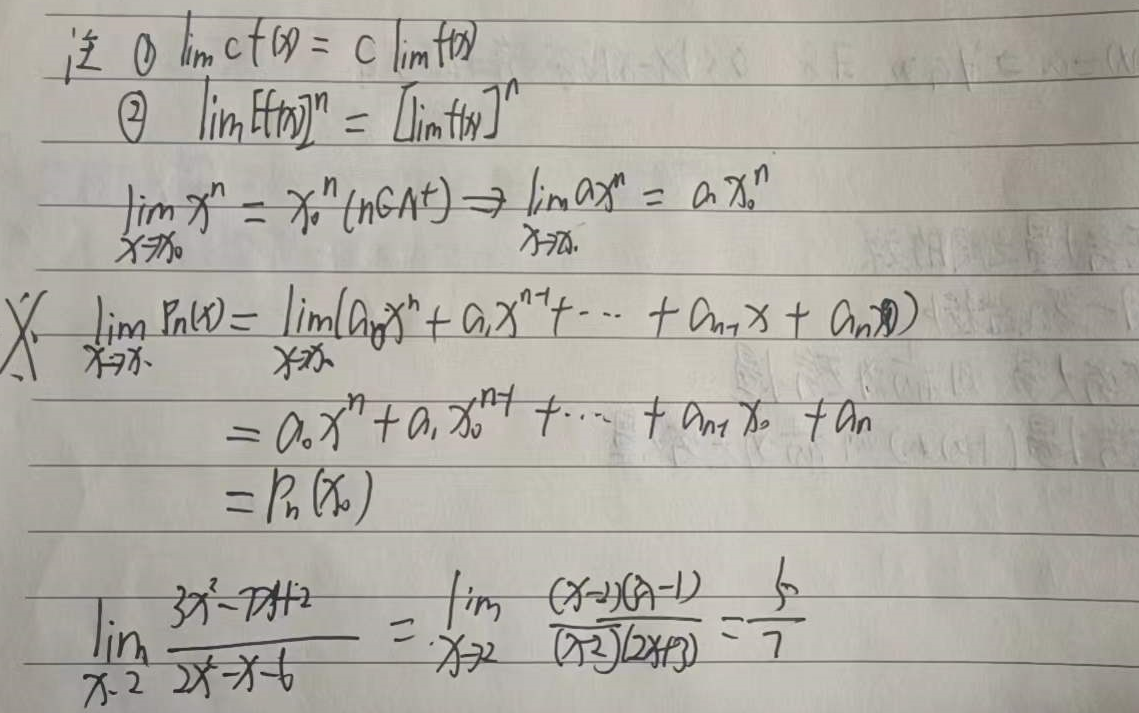 注 ① lim cf(x) = c lim f(x)
② lim[f(x)]ⁿ = [lim f(x)]ⁿ
lim_{x→x₀} xⁿ = x₀ⁿ (n∈N⁺) ⇒ lim_{x→x₀} axⁿ = a x₀ⁿ
※ lim_{x→x₀} Pₙ(x) = lim_{x→x₀} (a₀xⁿ + a₁xⁿ⁻¹ + ··· + aₙ₋₁x + aₙ)
= a₀xⁿ + a₁x₀ⁿ⁻¹ + ···· + aₙ₋₁x₀ + aₙ
= Pₙ(x₀)
lim_{x→2} (3x²-7x+2)/(2x²-x-6) = lim_{x→2} (x-2)(3x-1)/(x-2)(2x+3) = 5/7